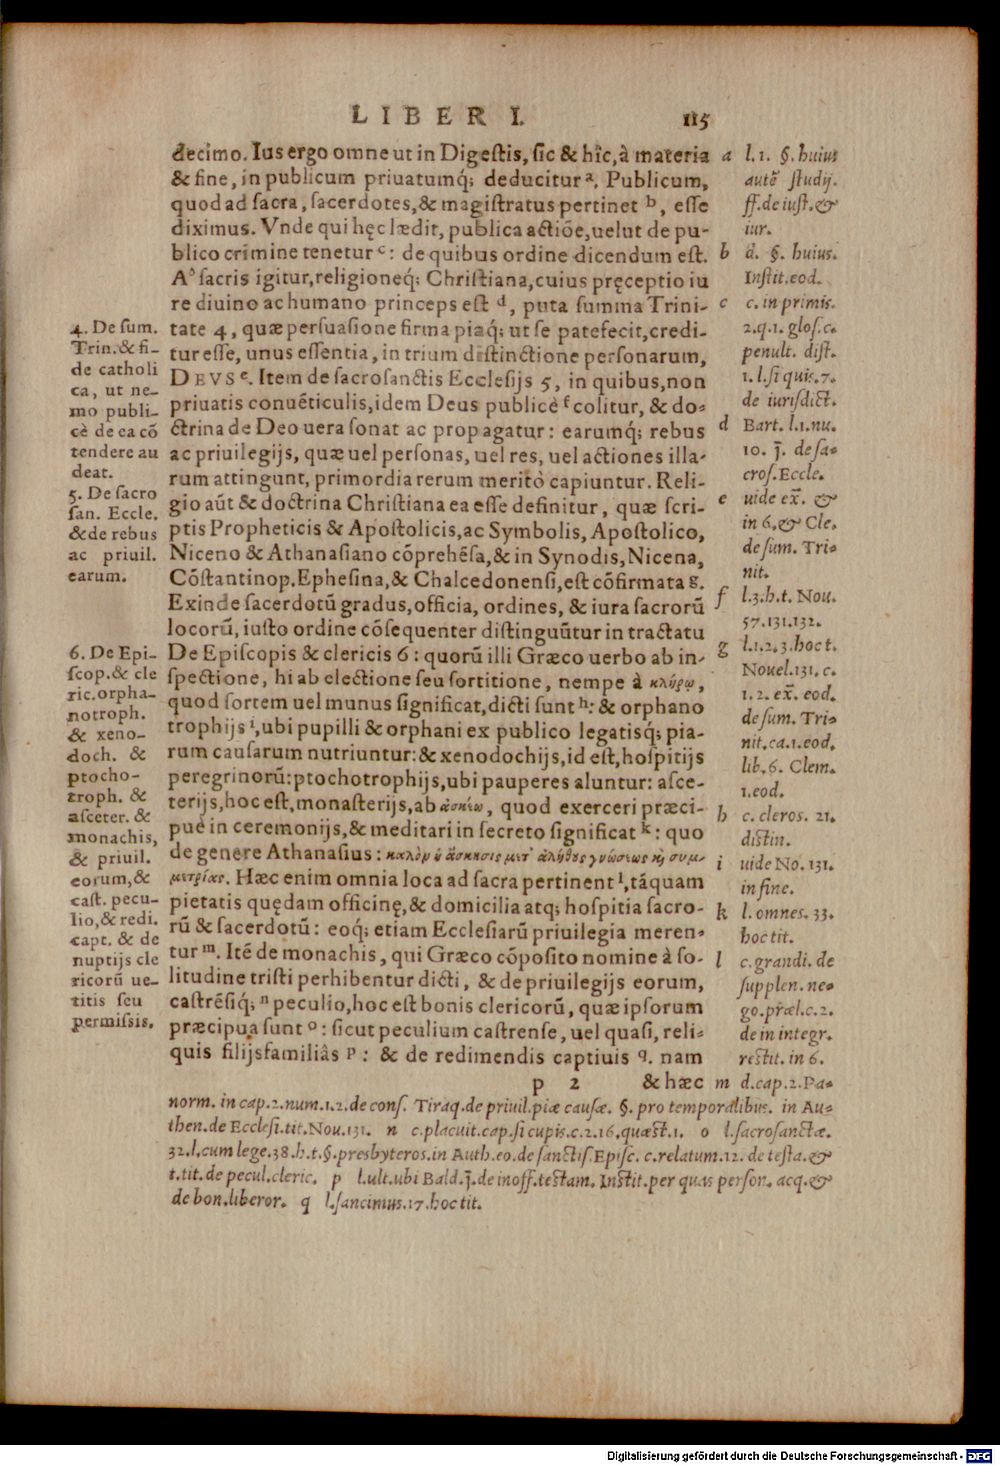 LIBER I. 115
decimo. Ius ergo omne ut in Digestis, sic & hîc, à materia
& fine, in publicum priuatumq́; deducitur ᵃ. Publicum,
quod ad sacra, sacerdotes, & magistratus pertinet ᵇ, esse
diximus. Vnde qui hęc lædit, publica actiõe, uelut de pu-
blico crimine tenetur ᶜ: de quibus ordine dicendum est.
A' sacris igitur, religioneq́; Christiana, cuius pręceptio iu
re diuino ac humano princeps est ᵈ, puta summa Trini-
tate 4, quæ persuasione firma piaq́; ut se patefecit, credi-
tur esse, unus essentia, in trium distinctione personarum,
DEVS ᵉ. Item de sacrosanctis Ecclesijs 5, in quibus, non
priuatis conuẽticulis, idem Deus publicè ᶠ colitur, & do-
ctrina de Deo uera sonat ac propagatur: earumq́; rebus
ac priuilegijs, quæ uel personas, uel res, uel actiones illa-
rum attingunt, primordia rerum meritò capiuntur. Reli-
gio aũt & doctrina Christiana ea esse definitur, quæ scri-
ptis Propheticis & Apostolicis, ac Symbolis, Apostolico,
Niceno & Athanasiano cõprehẽsa, & in Synodis, Nicena,
Cõstantinop. Ephesina, & Chalcedonensi, est cõfirmata ᵍ.
Exinde sacerdotũ gradus, officia, ordines, & iura sacrorũ
locorũ, iusto ordine cõsequenter distinguũtur in tractatu
De Episcopis & clericis 6: quorũ illi Græco uerbo ab in-
spectione, hi ab electione seu sortitione, nempe à κλήρῳ,
quod sortem uel munus significat, dicti sunt ʰ: & orphano
trophijs ⁱ, ubi pupilli & orphani ex publico legatisq́; pia-
rum causarum nutriuntur: & xenodochijs, id est, hospitijs
peregrinorũ: ptochotrophijs, ubi pauperes aluntur: asce-
terijs, hoc est, monasterijs, ab ἀσκέω, quod exerceri præci-
puè in ceremonijs, & meditari in secreto significat ᵏ: quo
de genere Athanasius: καλὸν ἡ ἄσκησις μετ' ἀληθοῦς γνώσεως καὶ συμ-
μετρίας. Hæc enim omnia loca ad sacra pertinent ˡ, tãquam
pietatis quędam officinę, & domicilia atq; hospitia sacro-
rũ & sacerdotũ: eoq́; etiam Ecclesiarũ priuilegia meren-
tur ᵐ. Itẽ de monachis, qui Græco cõposito nomine à so-
litudine tristi perhibentur dicti, & de priuilegijs eorum,
castrẽsiq́; ⁿ peculio, hoc est bonis clericorũ, quæ ipsorum
præcipua sunt ᵒ: sicut peculium castrense, uel quasi, reli-
quis filijsfamiliâs ᵖ: & de redimendis captiuis q. nam
p 2 & hæc
4. De sum.
Trin. & fi-
de catholi
ca, ut ne-
mo publi-
cè de ea cõ
tendere au
deat.
5. De sacro
san. Eccle.
& de rebus
ac priuil.
earum.
6. De Epi-
scop. & cle
ric. orpha-
notroph.
& xeno-
doch. &
ptocho-
troph. &
asceter. &
monachis,
& priuil.
eorum, &
cast. pecu-
lio, & redi.
capt. & de
nuptijs cle
ricorũ ue-
titis seu
permissis.
a l. 1. §. huius
autẽ studij.
ff. de iust. &
iur.
b d. §. huius.
Instit. eod.
c c. in primis.
2. q. 1. glos. c.
penult. dist.
1. l. si quis. 7.
de iurisdict.
d Bart. l. 1. nu.
10. J̃. de sa-
cros. Eccle.
e uide ex̃. &
in 6. & Cle.
de sum. Tri-
nit.
f l. 3. h. t. Nou.
57. 131. 132.
g l. 1. 2. 3. hoc t.
Nouel. 131. c.
1. 2. ex̃. eod.
de sum. Tri-
nit. ca. 1. eod.
lib. 6. Clem.
1. eod.
h c. cleros. 21.
distin.
i uide No. 131.
in fine.
k l. omnes. 33.
hoc tit.
l c. grandi. de
supplen. ne-
go. præl. c. 2.
de in integr.
restit. in 6.
m d. cap. 2. Pa-
norm. in cap. 2. num. 1. 2. de cons. Tiraq. de priuil. piæ causæ. §. pro temporalibus. in Au-
then. de Ecclesi. tit. Nou. 131. n c. placuit. cap. si cupis. c. 2. 16. quæst. 1. o l. sacrosanctæ.
32. l. cum lege. 38. h. t. §. presbyteros. in Auth. eo. de sanctis. Episc. c. relatum. 12. de testa. &
t. tit. de pecul. cleric. p l. ult. ubi Bald. J̃. de inoff. testam. Instit. per quas person. acq. &
de bon. liberor. q l. sancimus. 17. hoc tit.
Digitalisierung gefördert durch die Deutsche Forschungsgemeinschaft - DFG